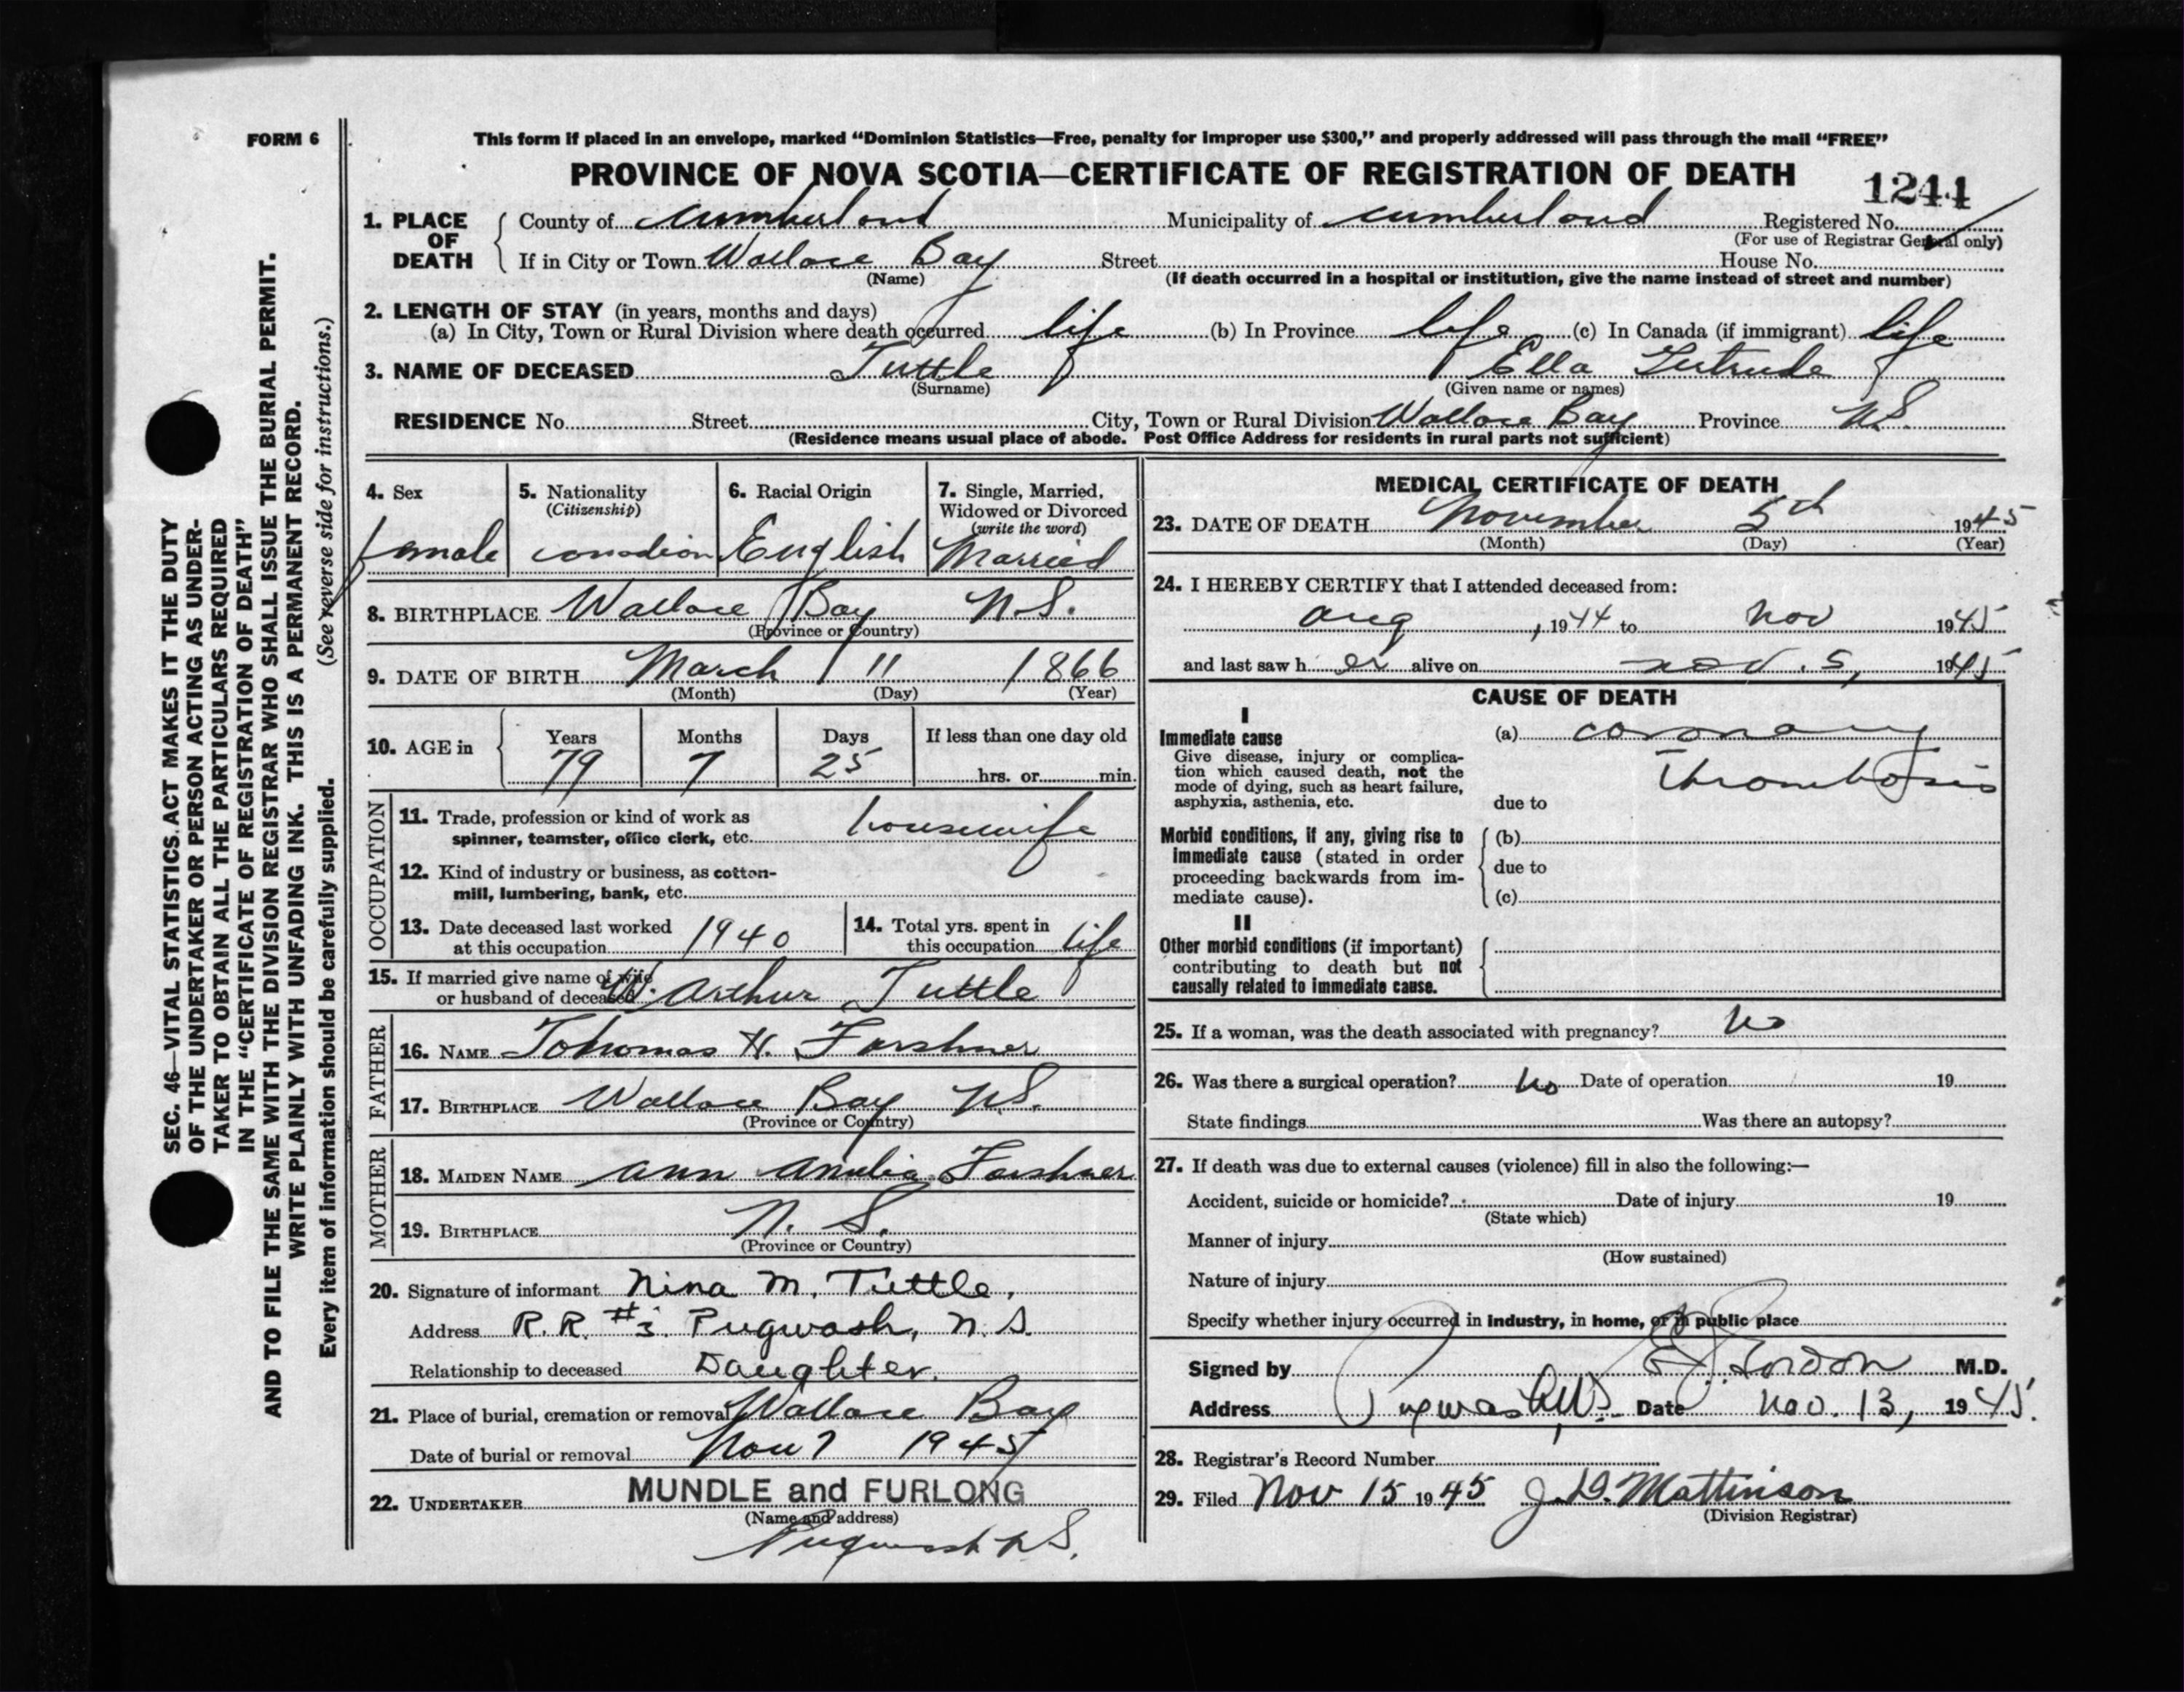 FORM 6
This form if placed in an envelope, marked “Dominion Statistics—Free, penalty for improper use $300,” and properly addressed will pass through the mail “FREE”
PROVINCE OF NOVA SCOTIA—CERTIFICATE OF REGISTRATION OF DEATH
1244
1. PLACE OF DEATH County of Cumberland Municipality of Cumberland Registered No.
(For use of Registrar General only)
If in City or Town Wallace Bay Street House No.
(Name) (If death occurred in a hospital or institution, give the name instead of street and number)
2. LENGTH OF STAY (in years, months and days)
(a) In City, Town or Rural Division where death occurred life (b) In Province life (c) In Canada (if immigrant) life
3. NAME OF DECEASED Tuttle Ella Gertrude
(Surname) (Given name or names)
RESIDENCE No. Street City, Town or Rural Division Wallace Bay Province N.S.
(Residence means usual place of abode. Post Office Address for residents in rural parts not sufficient)
4. Sex
female
5. Nationality
(Citizenship)
canadian
6. Racial Origin
English
7. Single, Married,
Widowed or Divorced
(write the word)
Married
8. BIRTHPLACE Wallace Bay N.S.
(Province or Country)
9. DATE OF BIRTH March 11 1866
(Month) (Day) (Year)
10. AGE in Years Months Days If less than one day old
79 7 25 hrs. or min.
OCCUPATION
11. Trade, profession or kind of work as
spinner, teamster, office clerk, etc. housewife
12. Kind of industry or business, as cotton-
mill, lumbering, bank, etc.
13. Date deceased last worked
at this occupation 1940
14. Total yrs. spent in
this occupation life
15. If married give name of wife
or husband of deceased W. Arthur Tuttle
FATHER
16. NAME Tohomas H. Forshner
17. BIRTHPLACE Wallace Bay N.S.
(Province or Country)
MOTHER
18. MAIDEN NAME Ann Amelia Forshner
19. BIRTHPLACE N. S.
(Province or Country)
20. Signature of informant Nina M. Tuttle,
Address R.R. #3. Pugwash, N.S.
Relationship to deceased Daughter.
21. Place of burial, cremation or removal Wallace Bay
Date of burial or removal Nov 7 1945
22. UNDERTAKER MUNDLE and FURLONG
(Name and address)
Pugwash N S.
MEDICAL CERTIFICATE OF DEATH
23. DATE OF DEATH November 5th 1945
(Month) (Day) (Year)
24. I HEREBY CERTIFY that I attended deceased from:
Aug , 1944 to Nov 1945
and last saw her alive on Nov. 5, 1945
CAUSE OF DEATH
I
Immediate cause
Give disease, injury or complica-
tion which caused death, not the
mode of dying, such as heart failure,
asphyxia, asthenia, etc.
(a) coronary
Thrombosis
due to
Morbid conditions, if any, giving rise to
immediate cause (stated in order
proceeding backwards from im-
mediate cause).
(b)
due to
(c)
II
Other morbid conditions (if important)
contributing to death but not
causally related to immediate cause.
25. If a woman, was the death associated with pregnancy? No
26. Was there a surgical operation? No Date of operation 19
State findings Was there an autopsy?
27. If death was due to external causes (violence) fill in also the following:—
Accident, suicide or homicide? Date of injury 19
(State which)
Manner of injury
(How sustained)
Nature of injury
Specify whether injury occurred in industry, in home, or in public place
Signed by Gordon M.D.
Address Pugwash, N.S. Date Nov. 13, 1945.
28. Registrar’s Record Number
29. Filed Nov 15 1945 J. D. Mattinson
(Division Registrar)
SEC. 46—VITAL STATISTICS ACT MAKES IT THE DUTY
OF THE UNDERTAKER OR PERSON ACTING AS UNDER-
TAKER TO OBTAIN ALL THE PARTICULARS REQUIRED
IN THE “CERTIFICATE OF REGISTRATION OF DEATH”
AND TO FILE THE SAME WITH THE DIVISION REGISTRAR WHO SHALL ISSUE THE BURIAL PERMIT.
WRITE PLAINLY WITH UNFADING INK. THIS IS A PERMANENT RECORD.
Every item of information should be carefully supplied. (See reverse side for instructions.)